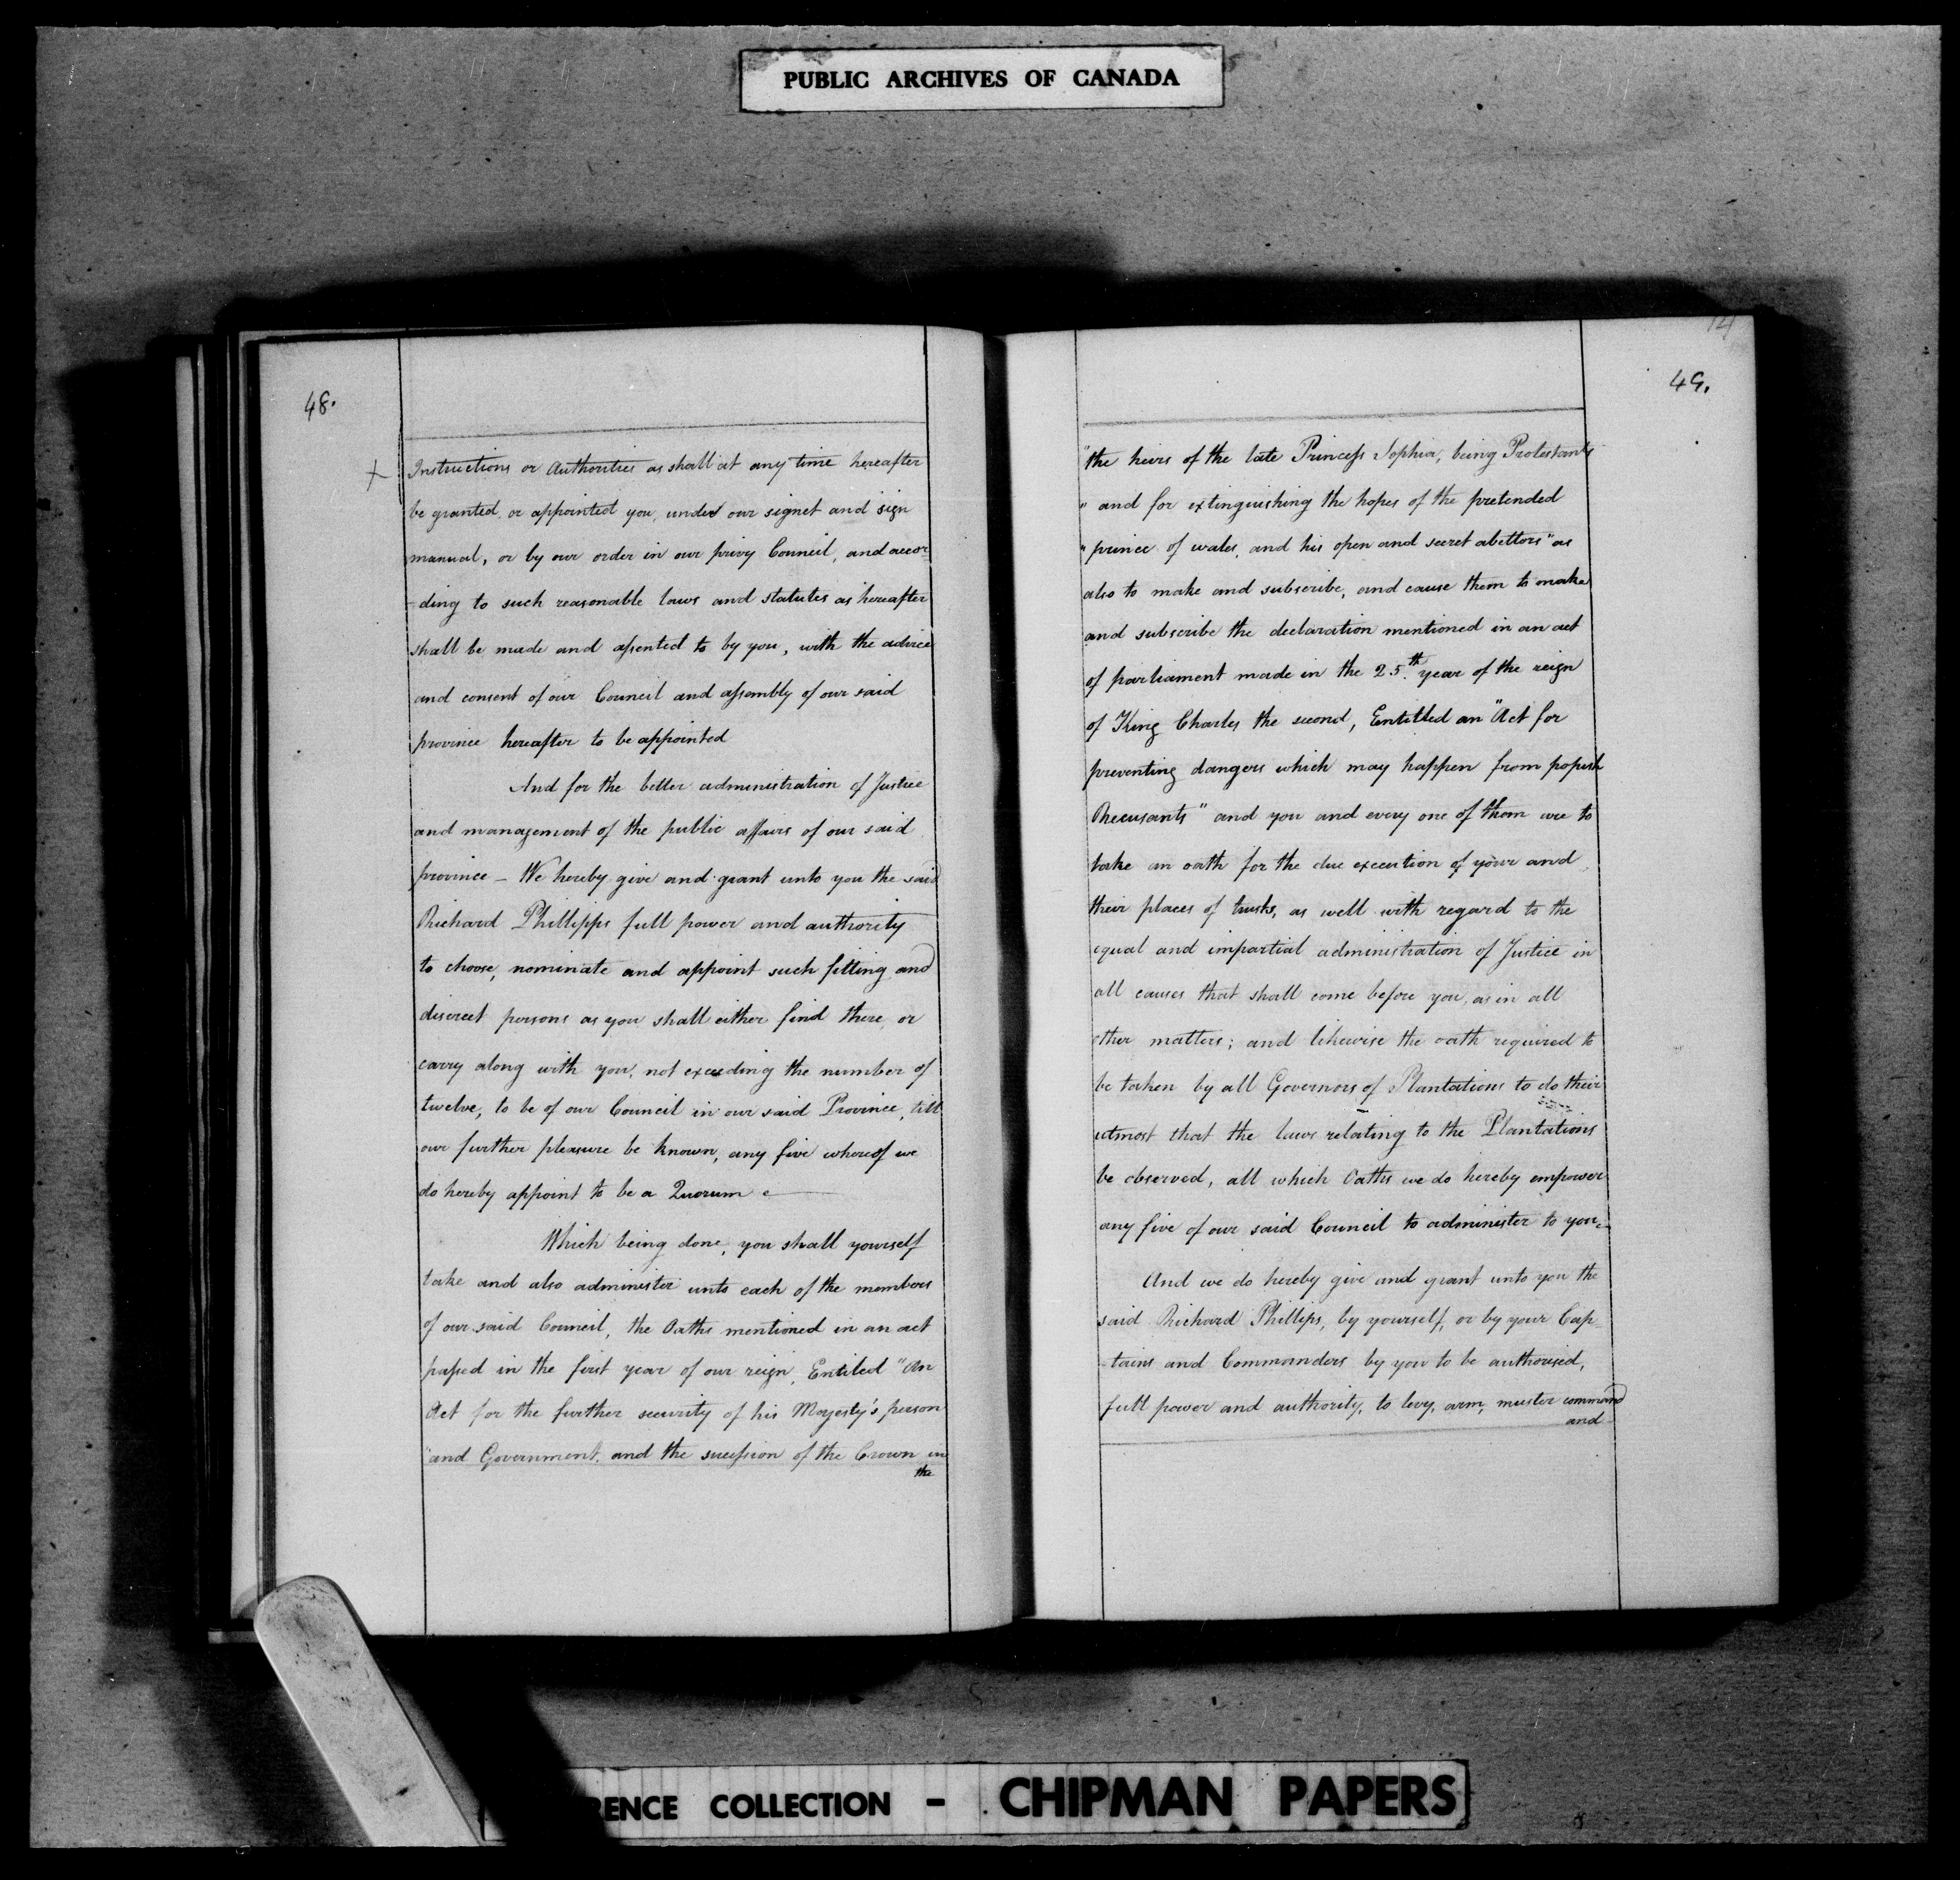 PUBLIC ARCHIVES OF CANADA
48.
Instructions or Authorities as shall at any time hereafter
be granted or appointed you, under our signet and sign
manual, or by our order in our privy Council, and accor-
-ding to such reasonable laws and statutes as hereafter
shall be made and assented to by you, with the advice
and consent of our Council and assembly of our said
province hereafter to be appointed
And for the better administration of Justice
and management of the public affairs of our said
province - We hereby give and grant unto you the said
Richard Phillipps full power and authority
to choose, nominate and appoint such fitting and
discreet persons as you shall either find there or
carry along with you, not exceeding the number of
twelve, to be of our Council in our said Province, till
our further pleasure be known, any five whereof we
do hereby appoint to be a Quorum
Which being done, you shall yourself
take and also administer unto each of the members
of our said Council, the Oaths mentioned in an act
passed in the first year of our reign, Entiled "An
Act for the further security of his Majesty's person
"and Government, and the sucession of the Crown in
the
49.
"the heirs of the late Princess Sophia, being Protestants
" and for extinguishing the hopes of the pretended
" prince of wales, and his open and secret abettors" as
also to make and subscribe, and cause them to make
and subscribe the declaration mentioned in an act
of parliament made in the 25.th year of the reign
of King Charles the second, Entitled an "Act for
preventing dangers which may happen from popish
Recusants" and you and every one of them are to
take an oath for the due execution of your and
their places of trusts, as well with regard to the
equal and impartial administration of Justice in
all causes that shall come before you, as in all
other matters; and likewise the oath required to
be taken by all Governors of Plantations to do their
utmost that the laws relating to the Plantations
be observed, all which Oaths we do hereby empower
any five of our said Council to administer to you.
And we do hereby give and grant unto you the
said Richard Phillips, by yourself, or by your Cap-
-tains and Commanders by you to be authorised,
full power and authority, to levy, arm, muster command
and
RENCE COLLECTION - CHIPMAN PAPERS